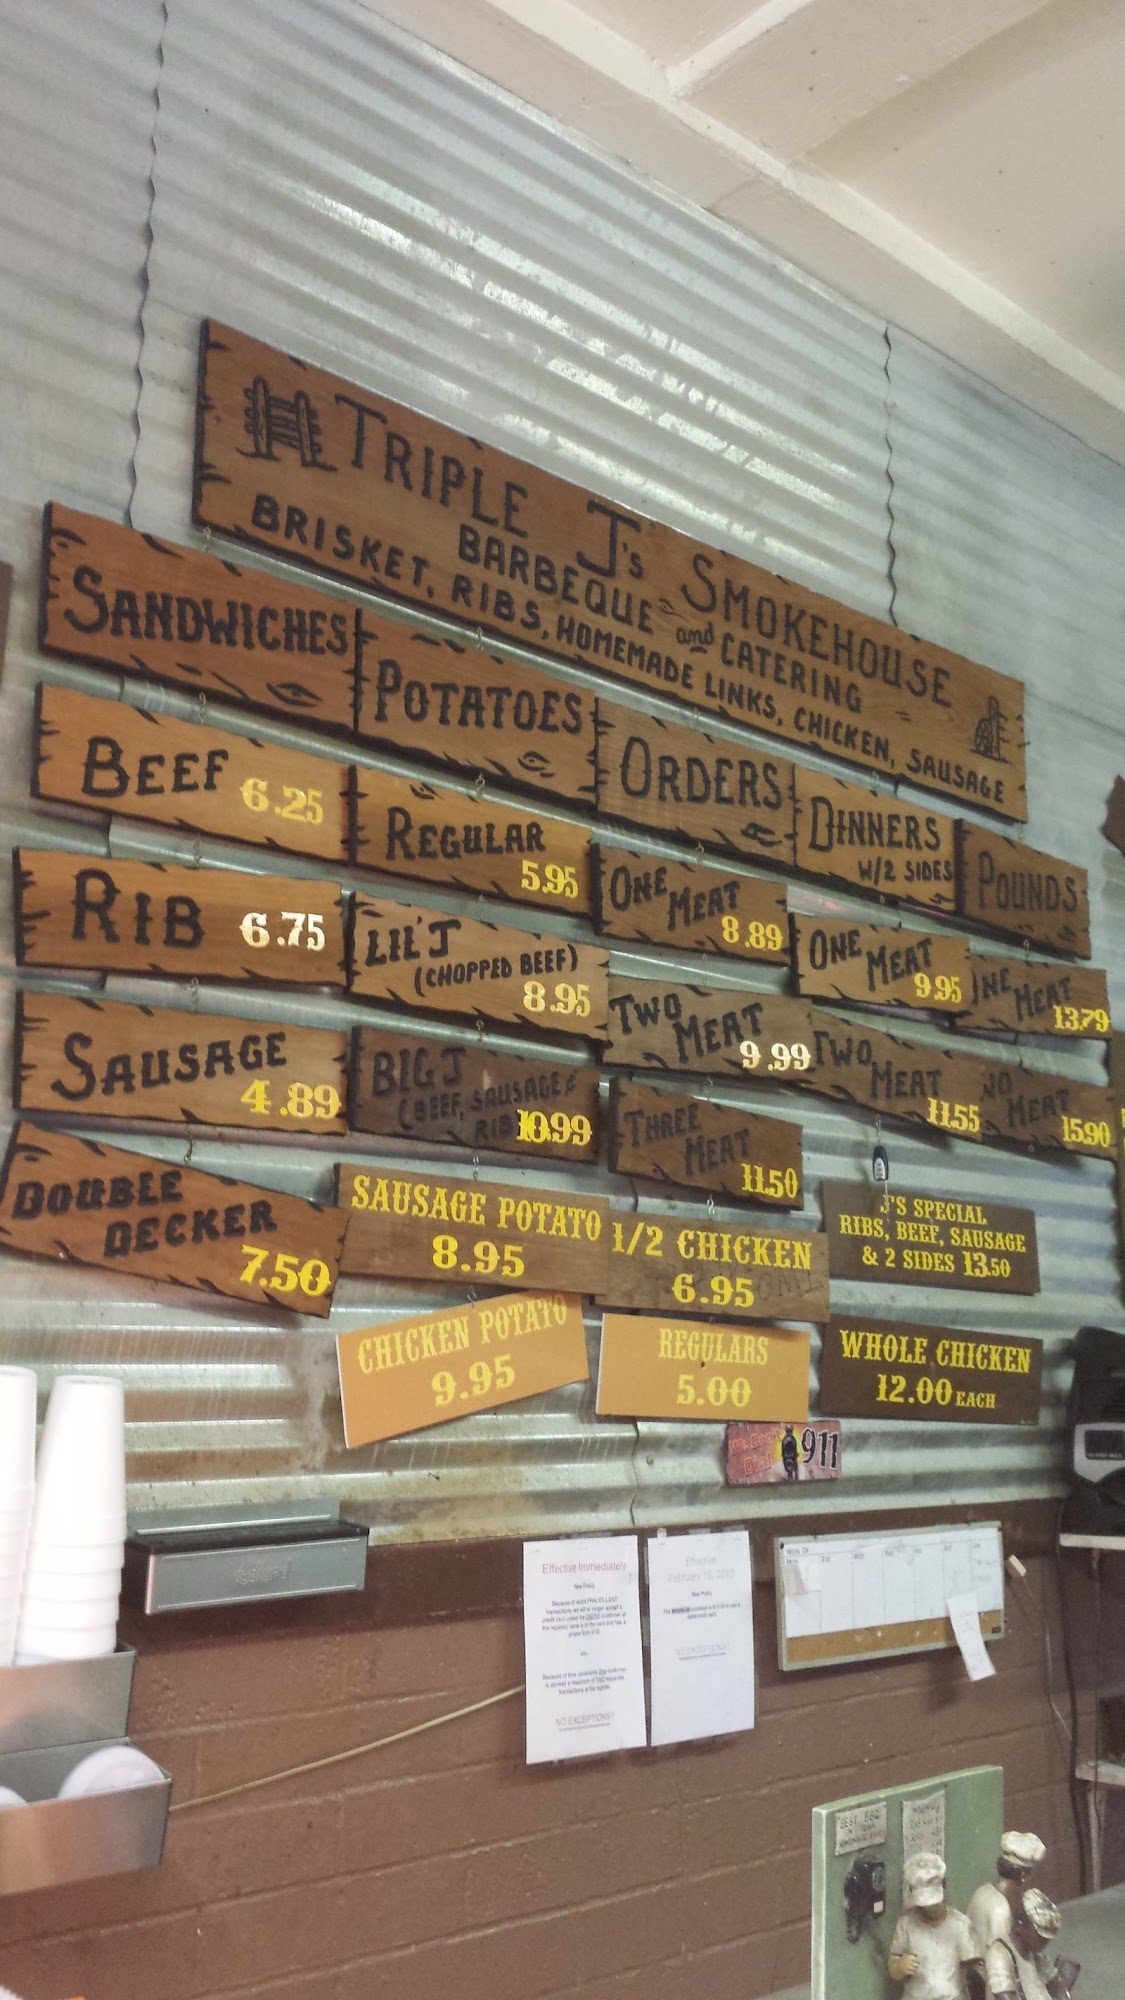 TRIPLE J's SMOKEHOUSE
BARBEQUE and CATERING
BRISKET, RIBS, HOMEMADE LINKS, CHICKEN, SAUSAGE
SANDWICHES
BEEF 6.25
RIB 6.75
SAUSAGE
4.89
DOUBLE
DECKER
7.50
POTATOES
REGULAR
5.95
LIL'J
(CHOPPED BEEF)
8.95
BIG J
(BEEF, SAUSAGE &
RIB
10.99
SAUSAGE POTATO
8.95
CHICKEN POTATO
9.95
ORDERS
ONE
MEAT
8.89
TWO
MEAT
9.99
THREE
MEAT
11.50
1/2 CHICKEN
6.95
REGULARS
5.00
DINNERS
W/2 SIDES
ONE
MEAT
9.95
TWO
MEAT
11.55
J'S SPECIAL
RIBS, BEEF, SAUSAGE
& 2 SIDES 13.50
WHOLE CHICKEN
12.00 EACH
POUNDS
MEAT
13.79
MEAT
15.90
911
Effective Immediately
New Policy
NO EXCEPTIONS!
Effective
February 16, 2013
New Policy
NO EXCEPTIONS!
BEST BBQ
IN TOWN